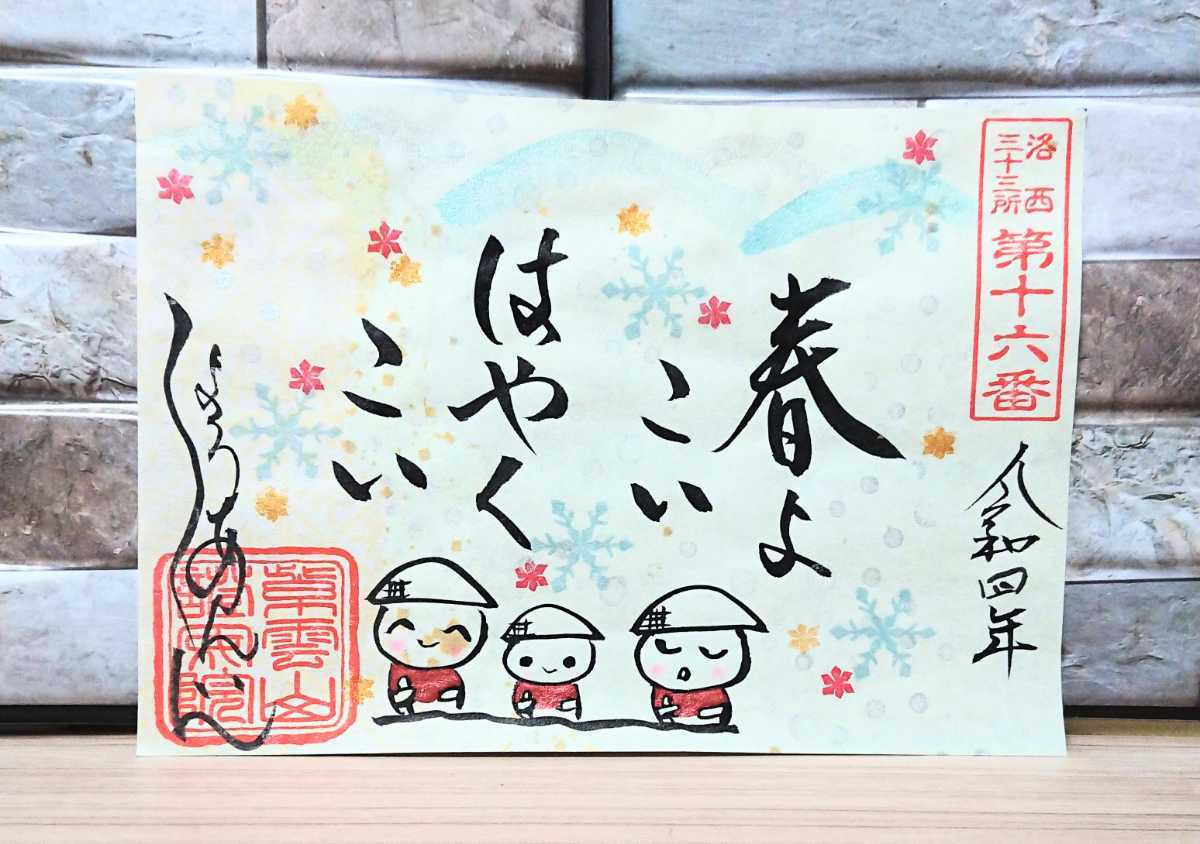 洛西
三十三所
第十六番
令和四年
春よ
こい
はやく
こい
しょうあんいん
華雲山